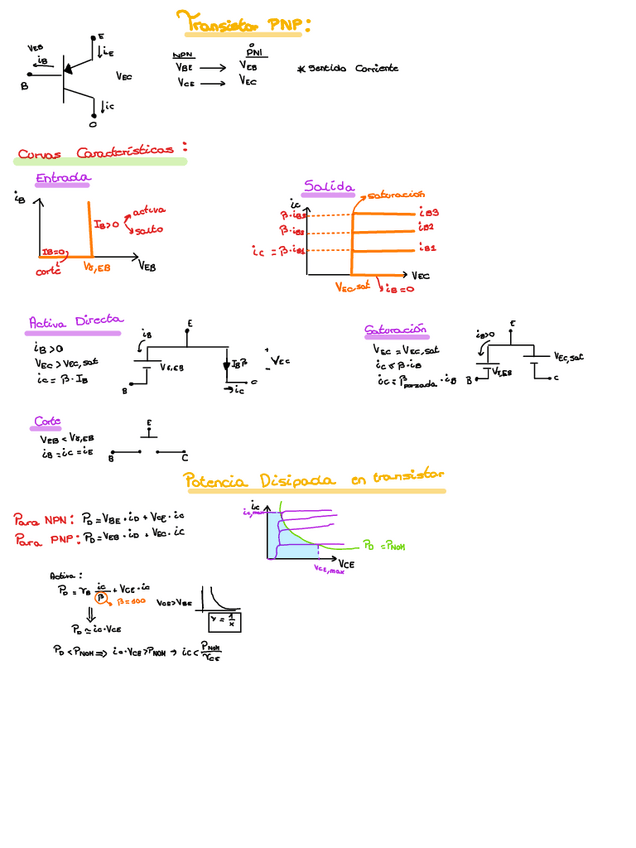 Transistor PNP:
E
VEB
iE
iB
VEC
B
iC
O
NPN
VBE → VEB
VCE → VEC
* Sentido Corriente
Curvas Características:
Entrada
iB
IB>0
activa
IB=0
corte
Vγ,EB
VEB
Salida
iC
saturación
β·iB3
iB3
β·iB2
iB2
iC = β·iB1
iB1
VEC,sat
VEC
iB=0
Activa Directa
iB>0
VEC>VEC,sat
iC = β·IB
E
iB
Vγ,EB
IBβ
+
-
VEC
B
iC
Saturación
VEC = VEC,sat
iC ≤ β·iB
iC = β forzada · iB
E
iB>0
Vγ,EB
VEC,sat
B
C
Corte
VEB < Vγ,EB
iB = iC = iE
E
B
C
Potencia Disipada en transistor
Para NPN: PD = VBE·iD + VCE·iC
Para PNP: PD = VEB·iD + VEC·iC
iC
iC,max
PD = PNOM
VCE
VCE,max
Activa:
β=100
VCE>VBE
Y = 1/x
PD ≃ iC·VCE
PD < PNOM ⇒ iC·VCE > PNOM → iC < PNOM/VCE